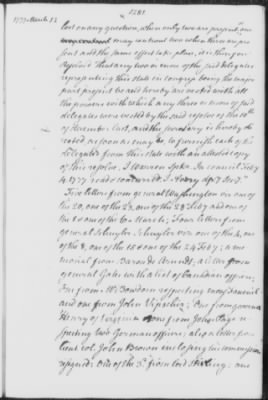 1281
1777 March 12
lost on any question, when only two are present, on
may not have two when three are pre
sent and the same effect take place, it is therefore
Resolved that any two or more of the said delegates
representing this state in congress being the major
part present be and hereby are vested with all
the powers with which any three or more of said
delegates were vested by the said resolve of the 10th
of December last, and the secretary is hereby di
rected, as soon as may be, to furnish each of his
delegates from this state with an attested copy
of this resolve. J Warren Spkr. In council Feby
4. 1777 read & concurred J Avery dpy Secy
Five letters from general Washington viz one of
the 20, one of the 23, one of the 28 Feby and one of
the 1 & one of the 6 March; Four letters from
general Schuyler, viz one of the 4, one
of the 8, one of the 15 & one of the 24 Feby; a me
morial from Baron de Arendt, a letter from
general Gates with a list of Canadian officers;
One from Mr Bowdoin respecting
and one from John Vipscher; One from governor
Henry of Virginia & one from John Page re
specting two German officers; also a letter from
lieut col. John Brown enclosing his commission &
resignd; One of the 3d from lord Stirling; one